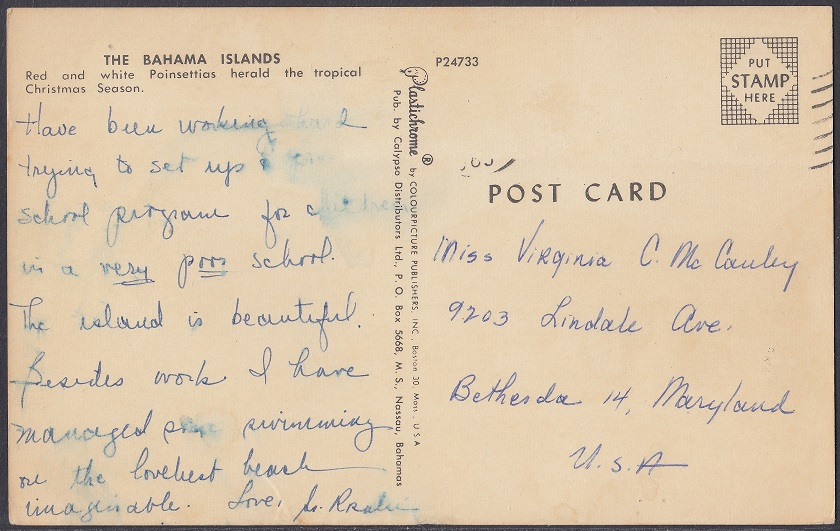 THE BAHAMA ISLANDS
Red and white Poinsettias herald the tropical
Christmas Season.
Have been working hard
trying to set up a
school program for
in a very poor school.
The island is beautiful.
Besides work I have
managed some swimming
on the loveliest beach
imaginable. Love,
Plastichrome ® by COLOURPICTURE PUBLISHERS, INC., Boston 30, Mass., U S A
Pub. by Calypso Distributors Ltd., P. O. Box 5668, M. S., Nassau, Bahamas
P24733
PUT
STAMP
HERE
POST CARD
Miss Virginia C. McCauley
9203 Lindale Ave.
Bethesda 14, Maryland
U.S.A